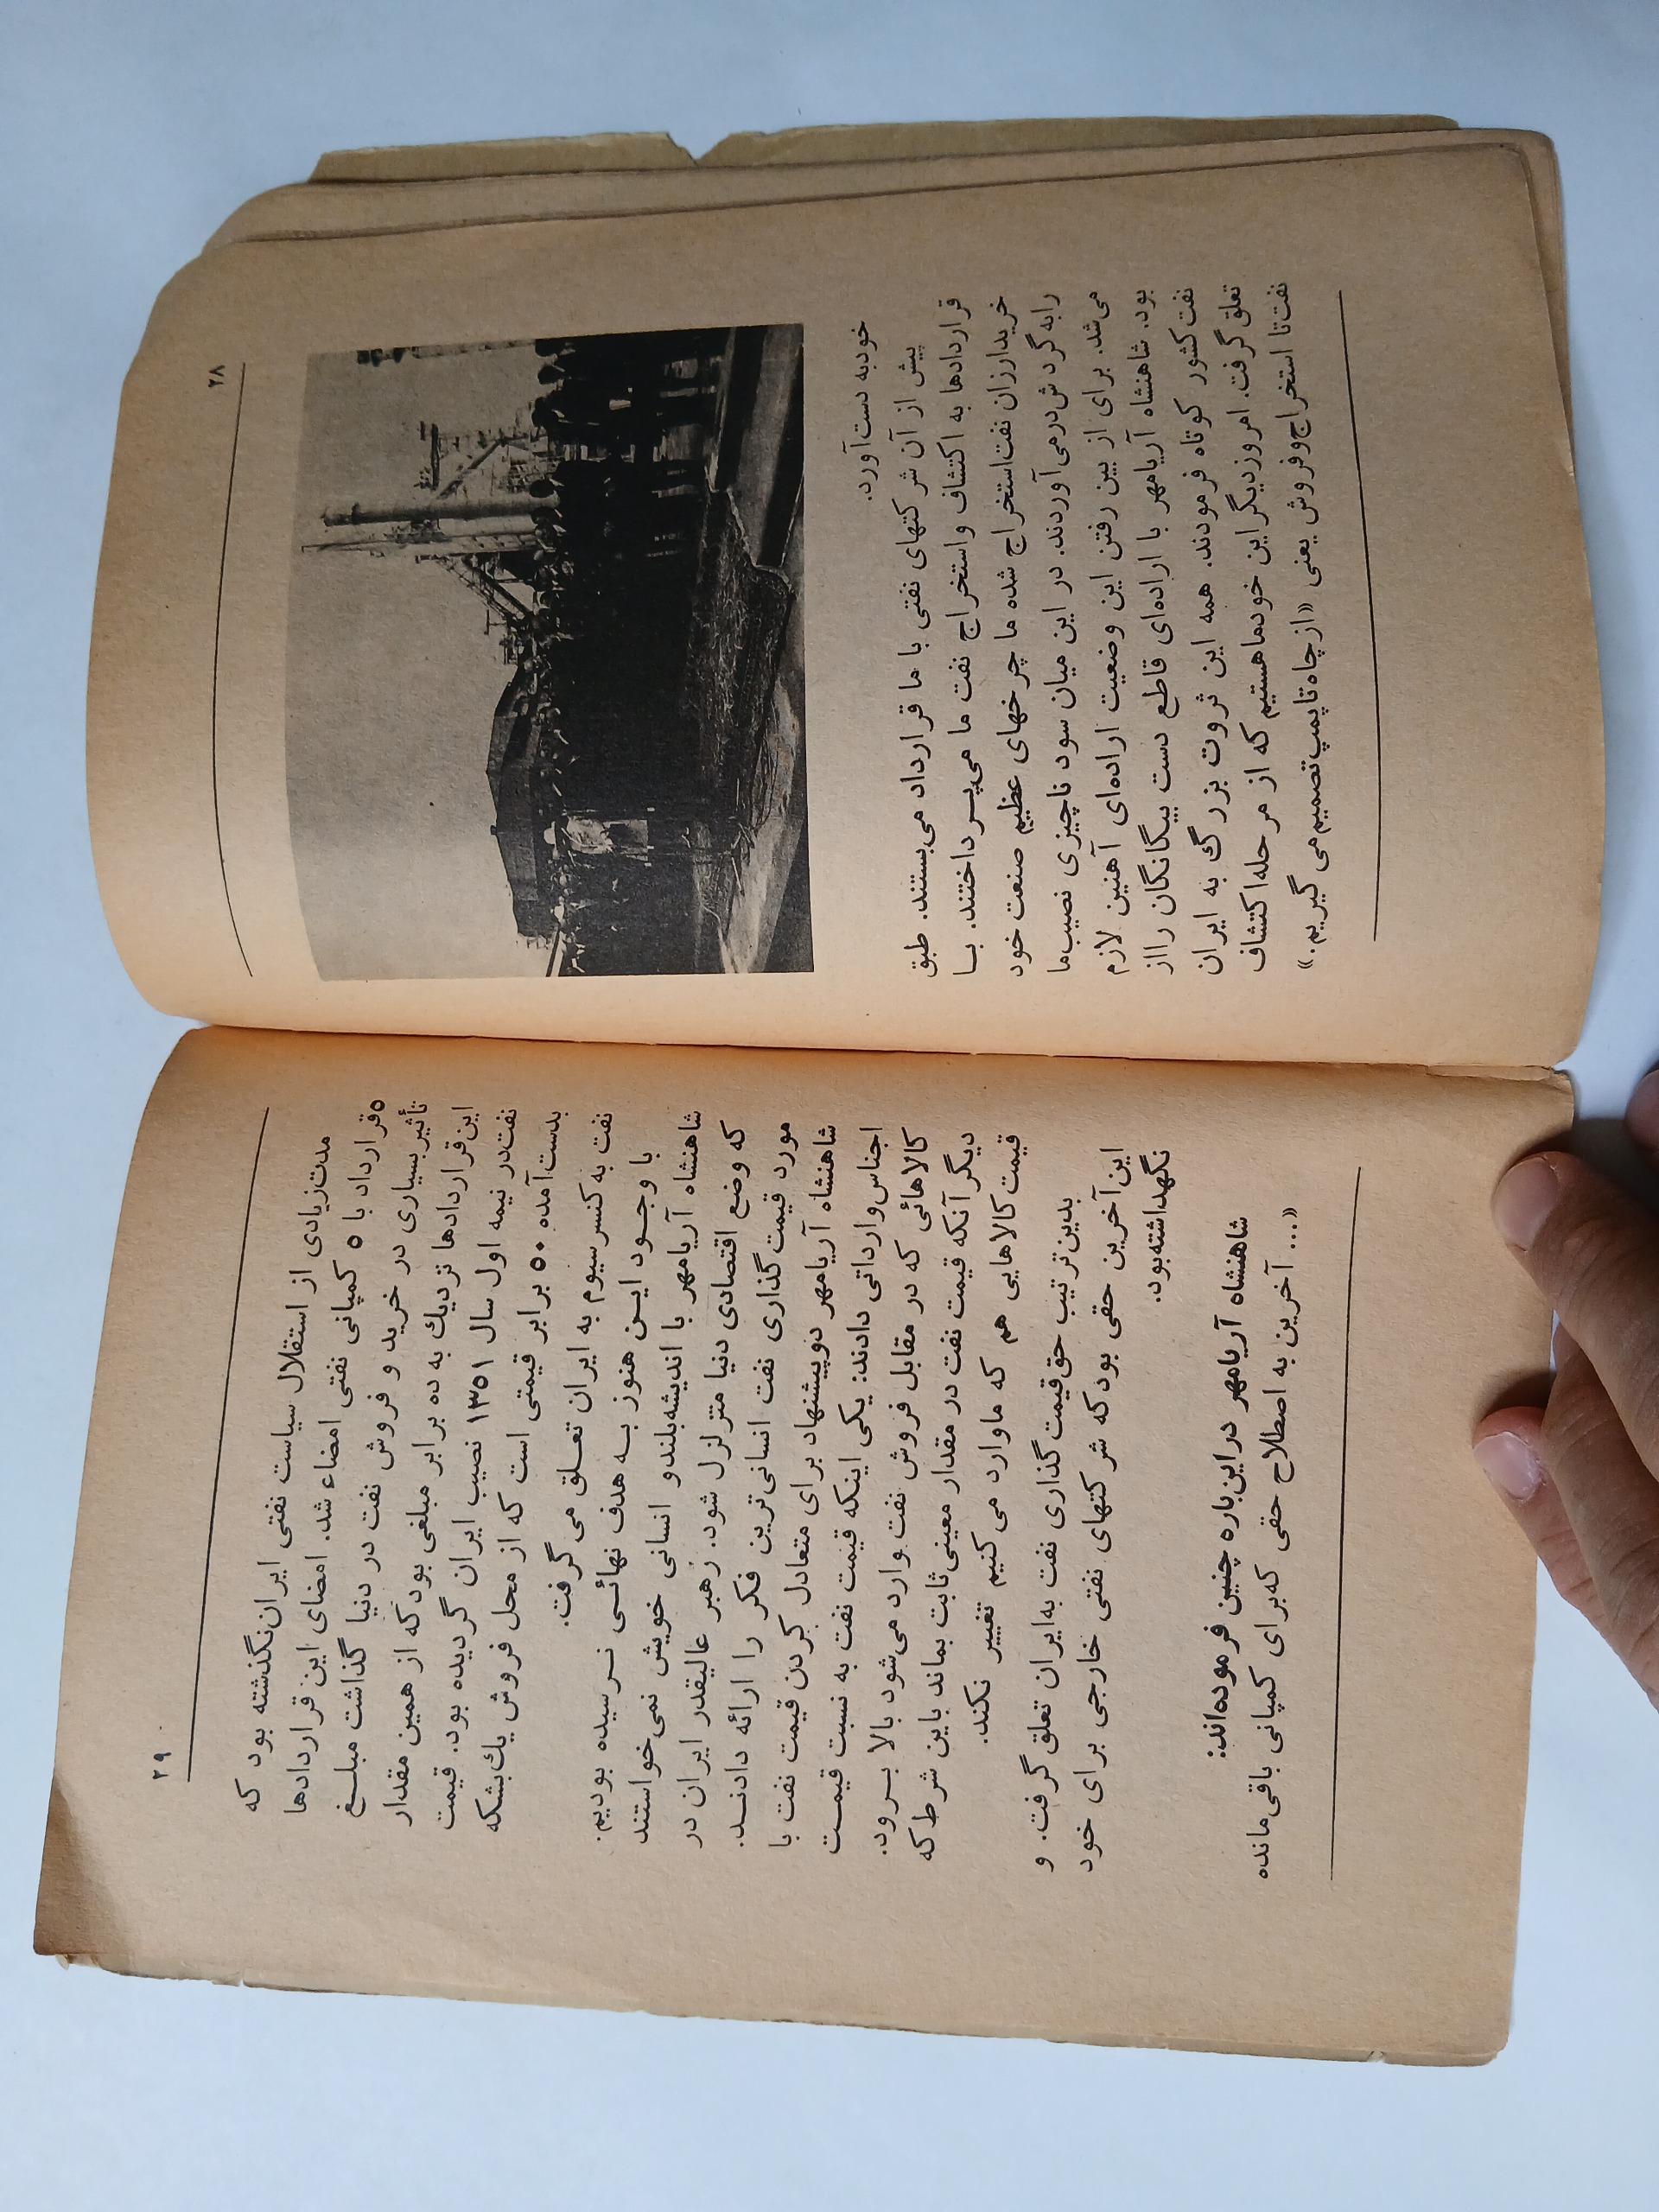 ۲۸
خودبه دست‌آورد.
پیش از آن شرکتهای نفتی با ما قرارداد می‌بستند. طبق
قراردادها به اکتشاف و استخراج نفت ما می‌پـرداختند. بـا
خریدارزان نفت‌استخراج شده ما چرخهای عظیم صنعت خود
رابه گردش‌درمی‌آوردند. در این میان سود ناچیزی نصیب‌ما
می‌شد. برای از بین رفتن این وضعیت اراده‌ای آهنین لازم
بود. شاهنشاه آریامهر با اراده‌ای قاطع دست بیگانگان رااز
نفت کشور کوتاه فرمودند. همه این ثروت بزرگ به ایران
تعلق‌گرفت. امروزدیگراین خودماهستیم که از مرحله‌اکتشاف
نفت‌تا استخراج‌وفروش یعنی «ازچاه‌تاپمپ‌تصمیم‌می‌گیریم.»
۲۹
مدت‌زیادی از استقلال سیاست نفتی ایران‌نگذشته بود که
۵قرارداد با ۵ کمپانی نفتی امضاء شد. امضای این قراردادها
تأثیربسیاری در خرید و فروش نفت در دنیا گذاشت مبلـغ
این‌قراردادها نزدیك به ده برابر مبلغی بودکه از همین مقدار
نفت‌در نیمه اول سال ۱۳۵۱ نصیب ایران گردیده بود. قیمت
بدست‌آمده ۵۰ برابر قیمتی است که از محل فروش یك‌بشکه
نفت به‌کنسرسیوم به ایران تعـلق می‌گرفت.
با وجـود ایـن هنوز بـه هدف نهائـی نـرسیده بودیم.
شاهنشاه آریامهر با اندیشه‌بلندو انسانی خویش نمی‌خواستند
که وضع اقتصادی دنیا متزلزل شود. رهبر عالیقدر ایران در
مورد قیمت‌گذاری نفت انسانی‌ترین فکر را ارائه دادنـد.
شاهنشاه آریامهر دوپیشنهاد برای متعادل کردن قیمت نفت با
اجناس‌وارداتی دادند: یکی اینکه قیمت نفت به نسبت قیمـت
کالاهائی که در مقابل فروش نفت وارد می‌شود بالا بـرود.
دیگرآنکه قیمت نفت در مقدار معینی‌ثابت بماند باین شرط‌که
قیمت‌کالاهایی هم که ماوارد می‌کنیم تغییر نکند.
بدین‌ترتیب حق‌قیمت‌گذاری نفت به‌ایران تعلق‌گرفت. و
این‌آخرین حقی بودکه شرکتهای نفتی خارجی برای خود
نگهداشته‌بود.
شاهنشاه آریامهر دراین‌باره چنین فرموده‌اند:
«... آخرین به اصطلاح حقی که‌برای کمپانی باقی‌مانده